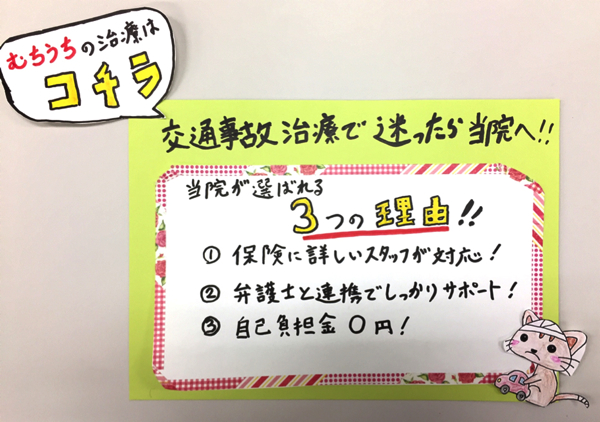 むちうちの治療は
コチラ
交通事故治療で迷ったら当院へ!!
当院が選ばれる
3つの理由!!
① 保険に詳しいスタッフが対応!
② 弁護士と連携でしっかりサポート!
③ 自己負担金0円!